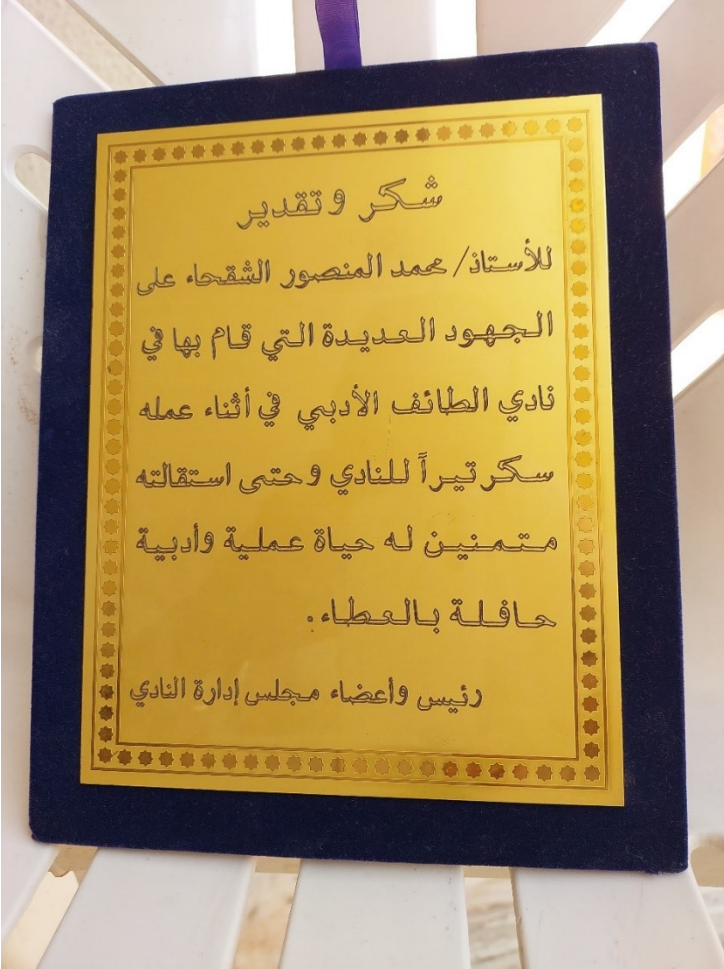 شكر وتقدير
للأستاذ/ محمد المنصور الشقحاء على
الجهود العديدة التي قام بها في
نادي الطائف الأدبي في أثناء عمله
سكرتيراً للنادي وحتى استقالته
متمنين له حياة عملية وأدبية
حافلة بالعطاء.
رئيس وأعضاء مجلس إدارة النادي